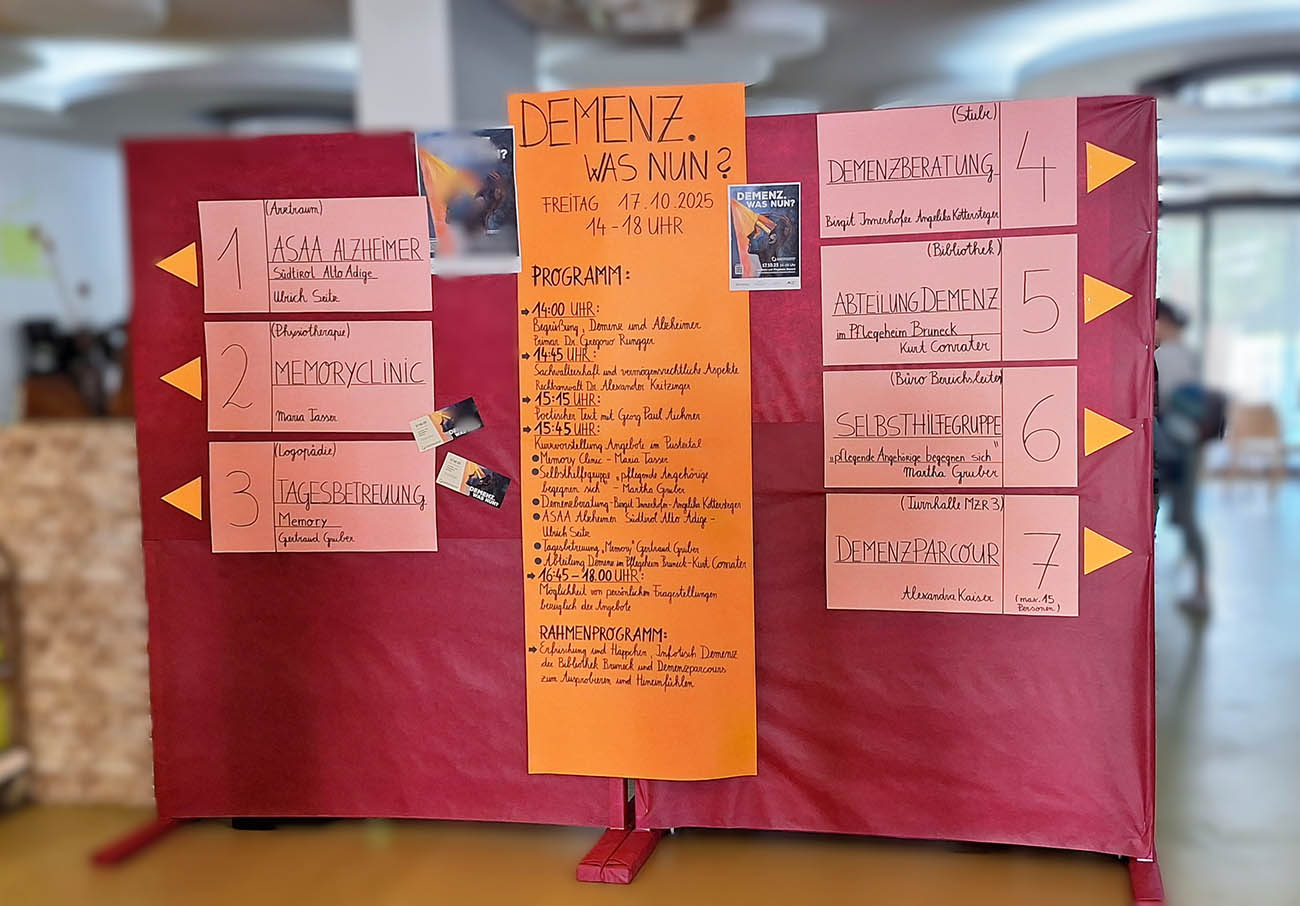 1
(Arztraum)
ASAA ALZHEIMER
Südtirol Alto Adige
Ulrich Seitz
2
(Physiotherapie)
MEMORYCLINIC
Maria Tasser
3
(Logopädie)
TAGESBETREUUNG
Memory
Gertraud Gruber
DEMENZ.
WAS NUN?
FREITAG 17.10.2025
14-18 UHR
PROGRAMM:
14:00 UHR:
Begrüßung, Demenz und Alzheimer
Primar Dr. Gregorio Rungger
14:45 UHR:
Sachwalterschaft und vermögensrechtliche Aspekte
Rechtsanwalt Dr. Alexander Kritzinger
15:15 UHR:
Poetischer Text mit Georg Paul Aichner
15:45 UHR:
Kurzvorstellung Angebote im Pustertal
Memory Clinic - Maria Tasser
Selbsthilfegruppe "pflegende Angehörige
begegnen sich" - Martha Gruber
Demenzberatung - Birgit Innerhofer - Angelika Köttersteger
ASAA Alzheimer Südtirol Alto Adige -
Ulrich Seitz
Tagesbetreuung "Memory" Gertraud Gruber
Abteilung Demenz im Pflegeheim Bruneck - Kurt Conrater
16:45 - 18.00 UHR:
Möglichkeit von persönlichen Fragestellungen
bezüglich der Angebote
RAHMENPROGRAMM:
Erfrischung und Häppchen, Infotisch Demenz
der Bibliothek Bruneck und Demenzparcours
zum Ausprobieren und Hineinfühlen
DEMENZ.
WAS NUN?
17.10.25
DEMENZ.
WAS NUN?
(Stube)
DEMENZBERATUNG
Birgit Innerhofer Angelika Köttersteger
4
(Bibliothek)
ABTEILUNG DEMENZ
im Pflegeheim Bruneck
Kurt Conrater
5
(Büro Bereichsleiter
SELBSTHILFEGRUPPE
"pflegende Angehörige begegnen sich"
Martha Gruber
6
(Turnhalle MZR 3)
DEMENZPARCOUR
Alexandra Kaiser
7
(max. 15
Personen)